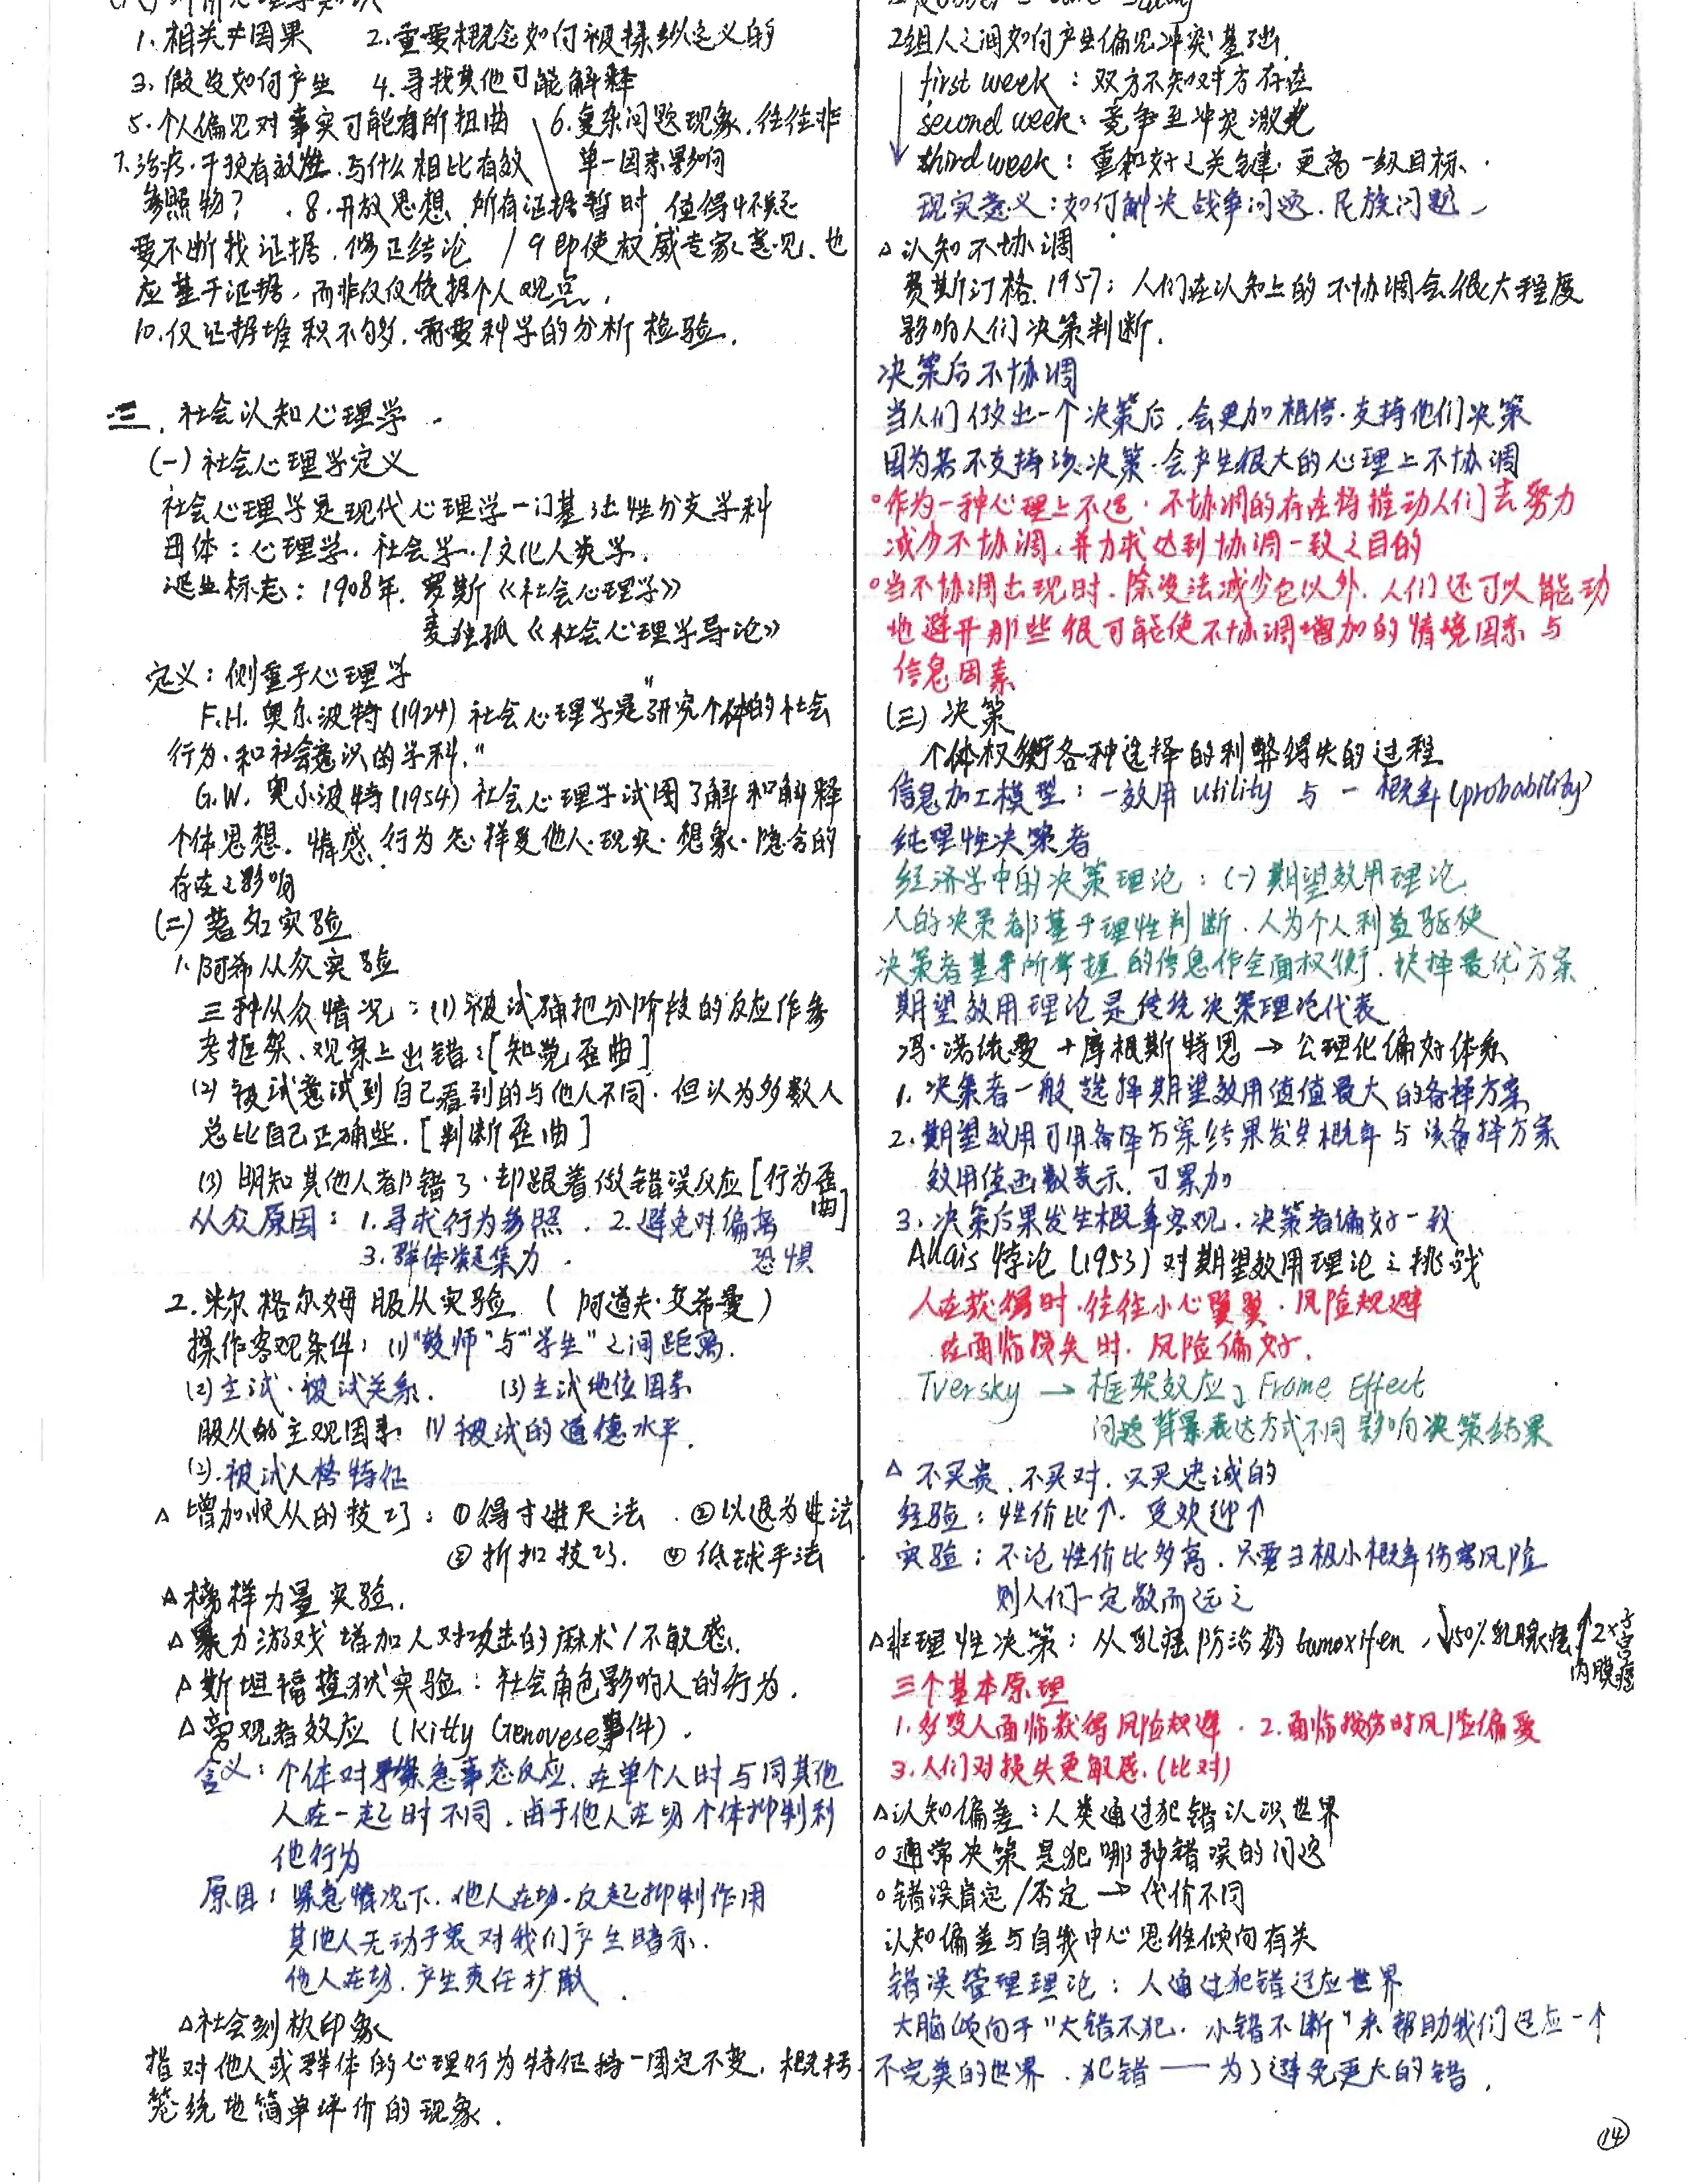 1. 相关≠因果 2.重要概念如何被操纵定义的
3. 假设如何产生 4.寻找其他可能解释
5.个人偏见对事实可能有所扭曲 6.复杂问题现象.往往非
7.治疗.干预有效性.与什么相比有效 单一因素影响
参照物? 8.开放思想、所有证据暂时.值得怀疑
要不断找证据.修正结论 / 9即使权威专家意见、也
应基于证据,而非仅仅依据个人观点,
10.仅证据堆积不够.需要科学的分析检验.
三、社会认知心理学
(一)社会心理学定义
社会心理学是现代心理学一门基础性分支学科
母体:心理学.社会学./文化人类学.
诞生标志:1908年.罗斯《社会心理学》
麦独孤《社会心理学导论》
定义:侧重于心理学
F.H.奥尔波特(1924)社会心理学是"研究个体的社会
行为.和社会意识的学科."
G.W.奥尔波特(1954)社会心理学试图了解和解释
个体思想.情感.行为怎样受他人.现实.想象.隐含的
存在之影响
(二)著名实验
1.阿希从众实验
三种从众情况:(1)被试确把分阶段的反应作参
考框架、观察上出错:[知觉歪曲]
(2)被试意试到自己看到的与他人不同.但认为多数人
总比自己正确些.[判断歪曲]
(3)明知其他人都错了.却跟着做错误反应[行为歪曲]
从众原因:1.寻求行为参照.2.避免对偏离恐惧
3.群体凝集力.
2.米尔格尔姆服从实验(阿道夫·艾希曼)
操作客观条件:(1)"教师"与"学生"之间距离.
(2)主试.被试关系. (3)主试地位因素
服从的主观因素 (1)被试的道德水平.
(2).被试人格特征
△增加顺从的技巧:①得寸进尺法.②以退为进法
③折扣技巧.④低球手法
△榜样力量实验.
△暴力游戏增加人对攻击的麻木/不敏感.
△斯坦福监狱实验:社会角色影响人的行为.
△旁观者效应(Kitty Genovese事件).
含义:个体对紧急事态反应.在单个人时与同其他
人在一起时不同.由于他人在场个体抑制利
他行为
原因:紧急情况下.他人在场.反起抑制作用
其他人无动于衷对我们产生暗示.
他人在场.产生责任扩散.
△社会刻板印象
指对他人或群体的心理行为特征持一固定不变.概括
笼统地简单评价的现象.
2组人之间如何产生偏见冲突基础.
first week:双方不知对方存在
second week:竞争至冲突激光
third week:重和好之关键.更高一级目标.
现实意义:如何解决战争问题.民族问题
△认知不协调
费斯汀格.1957:人们在认知上的不协调会很大程度
影响人们决策判断.
决策后不协调
当人们做出一个决策后.会更加相信.支持他们决策
因为若不支持该决策.会产生很大的心理上不协调
○作为一种心理上不适.不协调的存在将推动人们去努力
减少不协调.并力求达到协调一致之目的
○当不协调出现时.除设法减少它以外.人们还可以能动
地避开那些很可能使不协调增加的情境因素与
信息因素
(三)决策
个体权衡各种选择的利弊得失的过程
信息加工模型:一效用utility与一概率(probability)
纯理性决策者
经济学中的决策理论:(一)期望效用理论
人的决策都基于理性判断.人为个人利益驱使
决策者基于所掌握的信息作全面权衡.抉择最优方案
期望效用理论是传统决策理论代表
冯·诺依曼+摩根斯特恩→公理化偏好体系
1.决策者一般选择期望效用值值最大的备择方案
2.期望效用可用备择方案结果发生概率与该备择方案
效用值函数表示.可累加
3.决策后果发生概率客观.决策者偏好一致
Allais悖论(1953)对期望效用理论之挑战
人在获得时.往往小心翼翼.风险规避
在面临损失时.风险偏好.
Tversky→框架效应 Frame Effect
问题背景表达方式不同影响决策结果
△不买贵.不买对.只买忠诚的
经验:性价比↑.受欢迎↑
实验:不论性价比多高.只要3极小概率伤害风险
则人们一定敬而远之
△非理性决策:从乳癌防治药tamoxifen,↓50%乳腺癌↑2×子宫内膜癌
三个基本原理
1.多数人面临获得风险规避.2.面临损伤时风险偏爱
3.人们对损失更敏感.(比对)
△认知偏差:人类通过犯错认识世界
○通常决策是犯哪种错误的问题
○错误肯定/否定→代价不同
认知偏差与自我中心思维倾向有关
错误管理理论:人通过犯错适应世界
大脑倾向于"大错不犯.小错不断"来帮助我们适应一个
不完美的世界.犯错——为了避免更大的错.
14